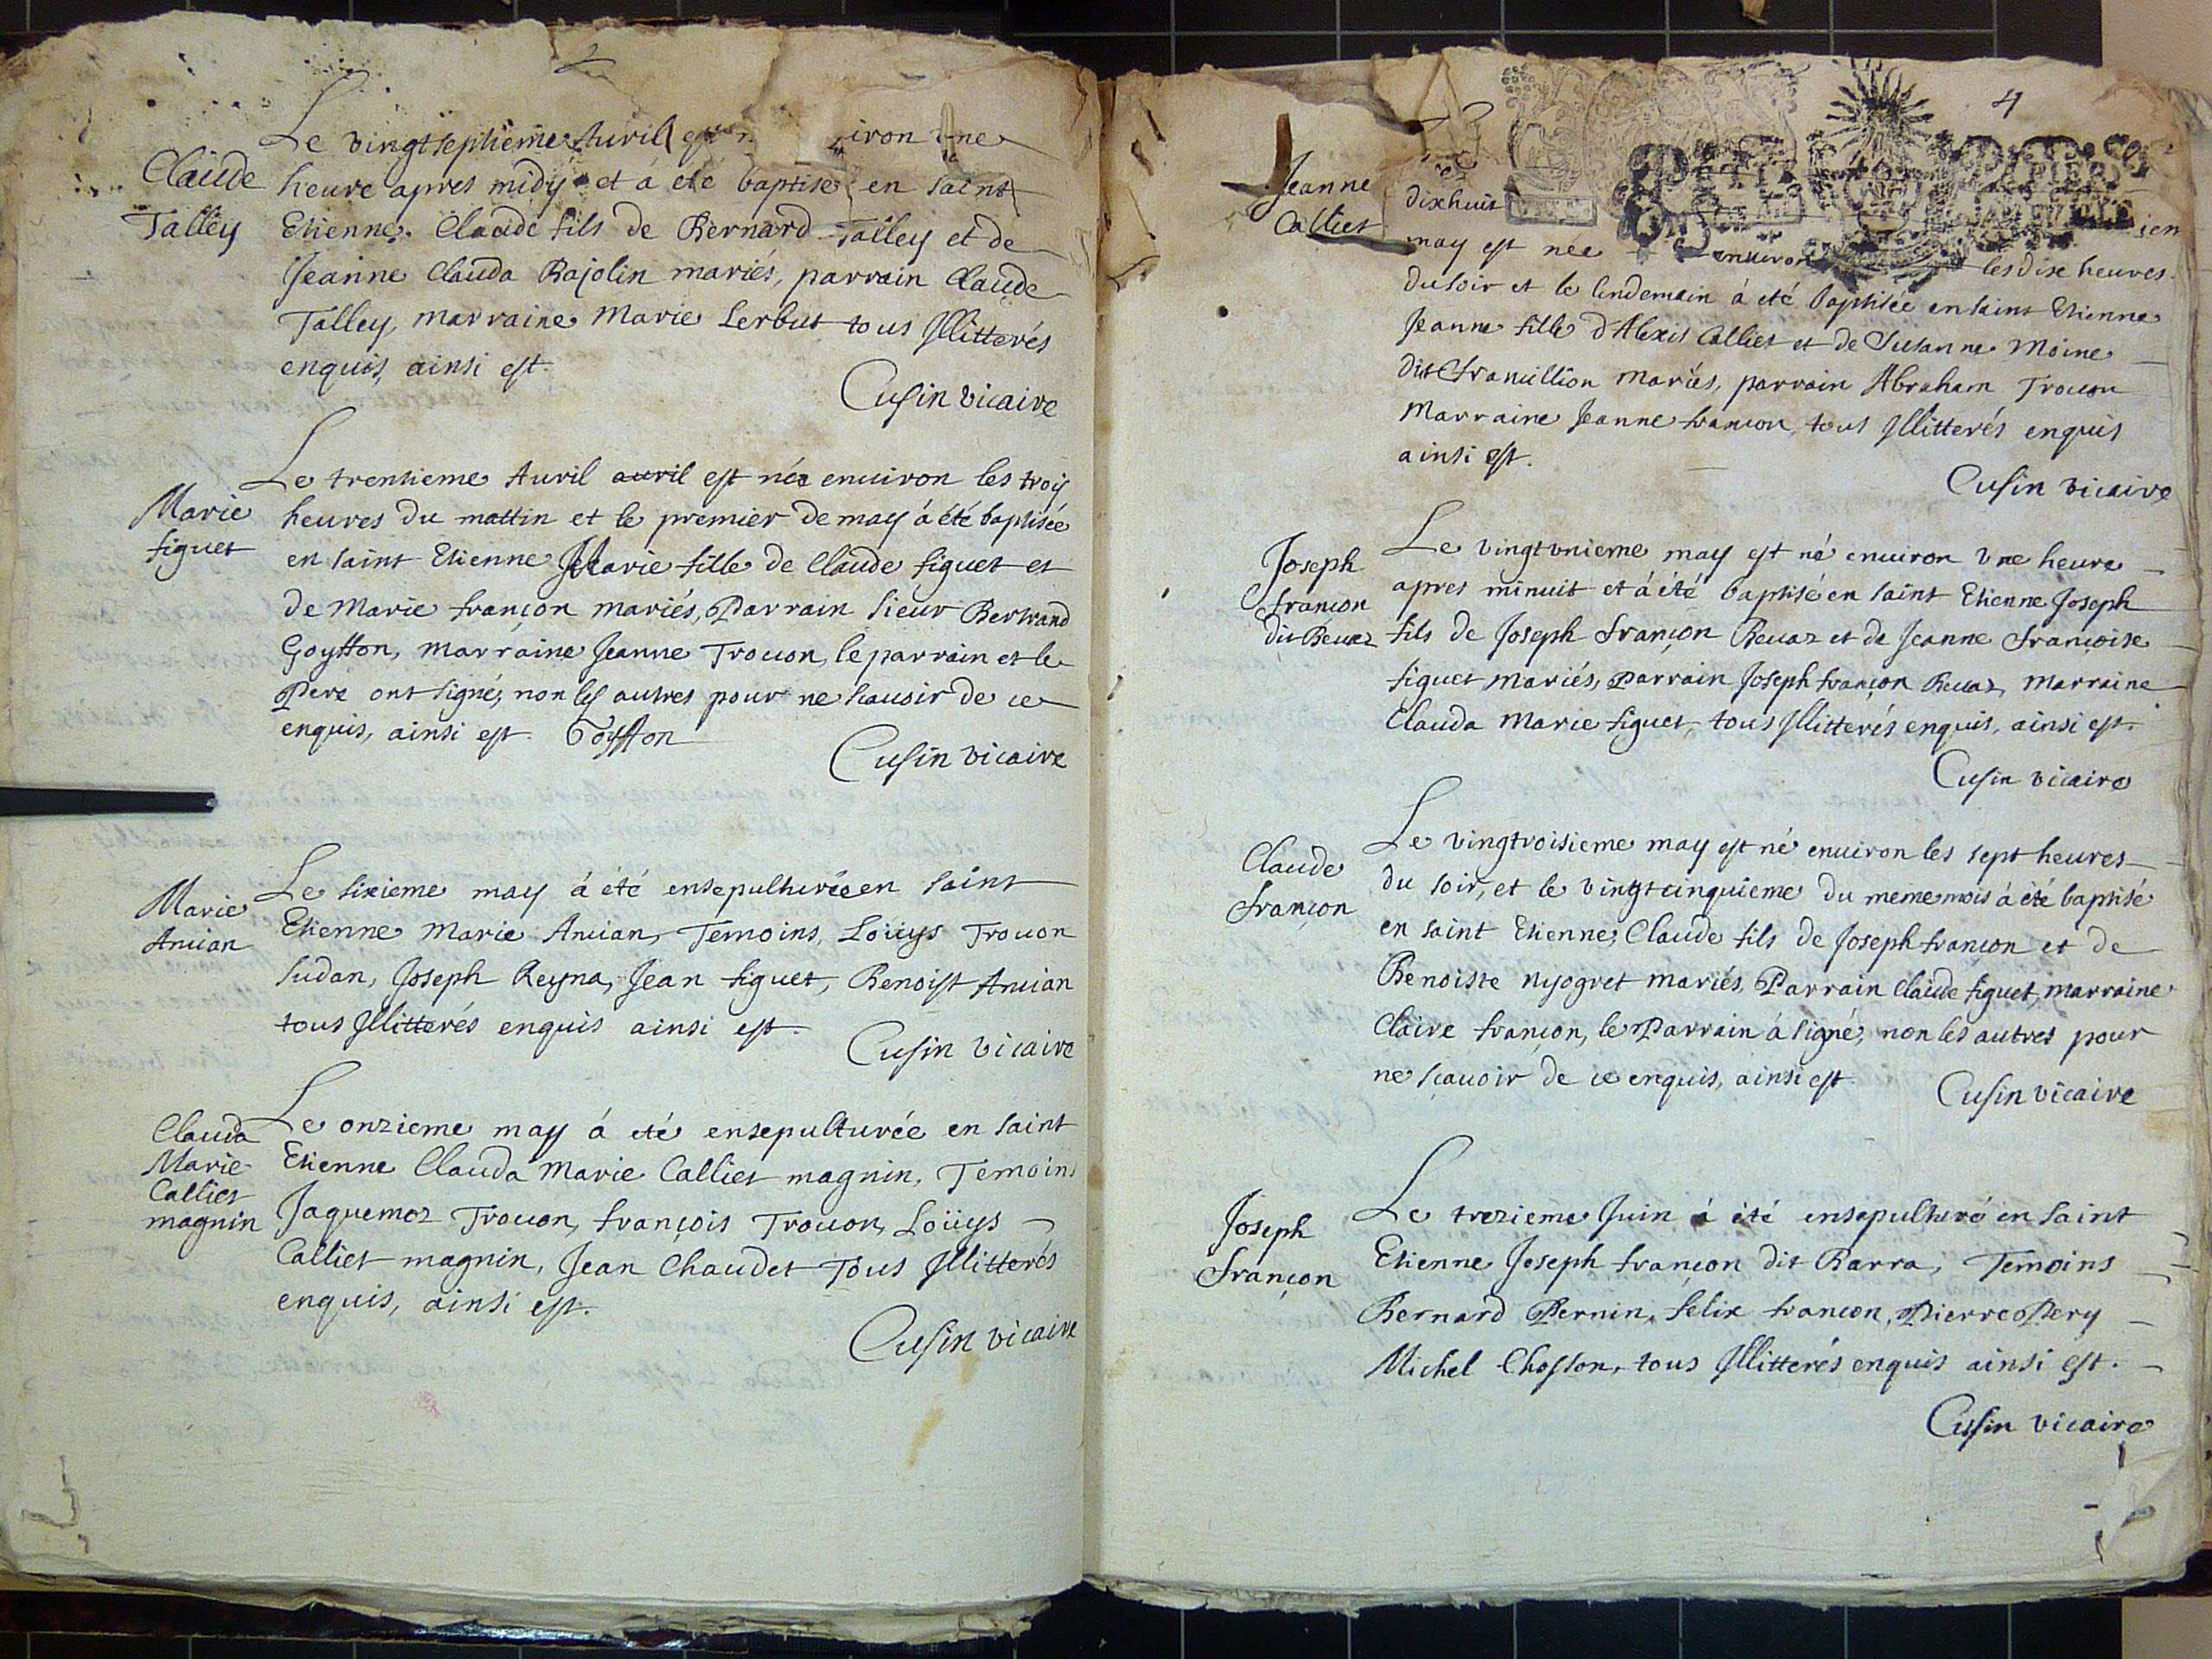 Le vingtseptieme Auril est n iron vne
Claude
Talley
heure apres midy et á eté baptisé en saint
Etienne Claude fils de Bernard Talley et de
Jeanne Clauda Rajolin mariés, parrain Claude
Talley, marraine Marie Lerbut tous Jllitterés
enquis, ainsi est.
Cusin vicaire
Marie
figuet
Le trentieme Auril auril est née enuiron les trois
heures du mattin et le premier de may á été baptisée
en saint Etienne Marie fille de Claude figuet et
de Marie françon mariés, Parrain sieur Bertrand
Goytton, marraine Jeanne Trouon, le parrain et le
Pere ont signé, non les autres pour ne scauoir de ce
enquis, ainsi est. Goytton
Cusin vicaire
Marie
Anuian
Le sixieme may á été ensepulturée en saint
Etienne Marie Anuian, Temoins, Loüys Trouon
sudan, Joseph Reyna, Jean figuet, Benoist Anuian
tous Jllitterés enquis ainsi est.
Cusin vicaire
Clauda
Marie
Calliet
magnin
Le onzieme may á eté ensepulturée en saint
Etienne Clauda Marie Calliet magnin, Temoins
Jaquemoz Trouon, françois Trouon, Loüys
Calliet magnin, Jean Chaudet Tous Jllitterés
enquis, ainsi est.
Cusin vicaire
4
Jeanne
Calliet
dixhuit
may est née enuiron les dix heures
du soir et le lendemain á eté baptisée en saint Etienne
Jeanne fille d'Alexis Calliet et de Susanne Moine
dit Framillion mariés, parrain Abraham Trouon
Marraine Jeanne françon, tous Jllitterés enquis
ainsi est.
Cusin vicaire
Joseph
françon
dit Reuaz
Le vingtvnieme may est né enuiron vne heure
apres minuit et á été baptisé en saint Etienne Joseph
fils de Joseph françon Reuaz et de Jeanne françoise
figuet mariés, Parrain Joseph françon Reuaz, marraine
Clauda Marie figuet, tous Jllitterés enquis, ainsi est.
Cusin vicaire
Claude
françon
Le vingtroisieme may est né enuiron les sept heures
du soir, et le vingtcinquieme du meme mois á été baptisé
en saint Etienne, Claude fils de Joseph françon et de
Benoiste nyogret mariés, Parrain Claude figuet, marraine
Claire françon, le Parrain á signé, non les autres pour
ne sçauoir de ce enquis, ainsi est.
Cusin vicaire
Joseph
françon
Le trezieme Juin á été ensepulturé en saint
Etienne Joseph françon dit Barra, Temoins
Bernard Pernin, felix françon, Pierre Pery
Michel Chosson, tous Jllitterés enquis ainsi est.
Cusin vicaire